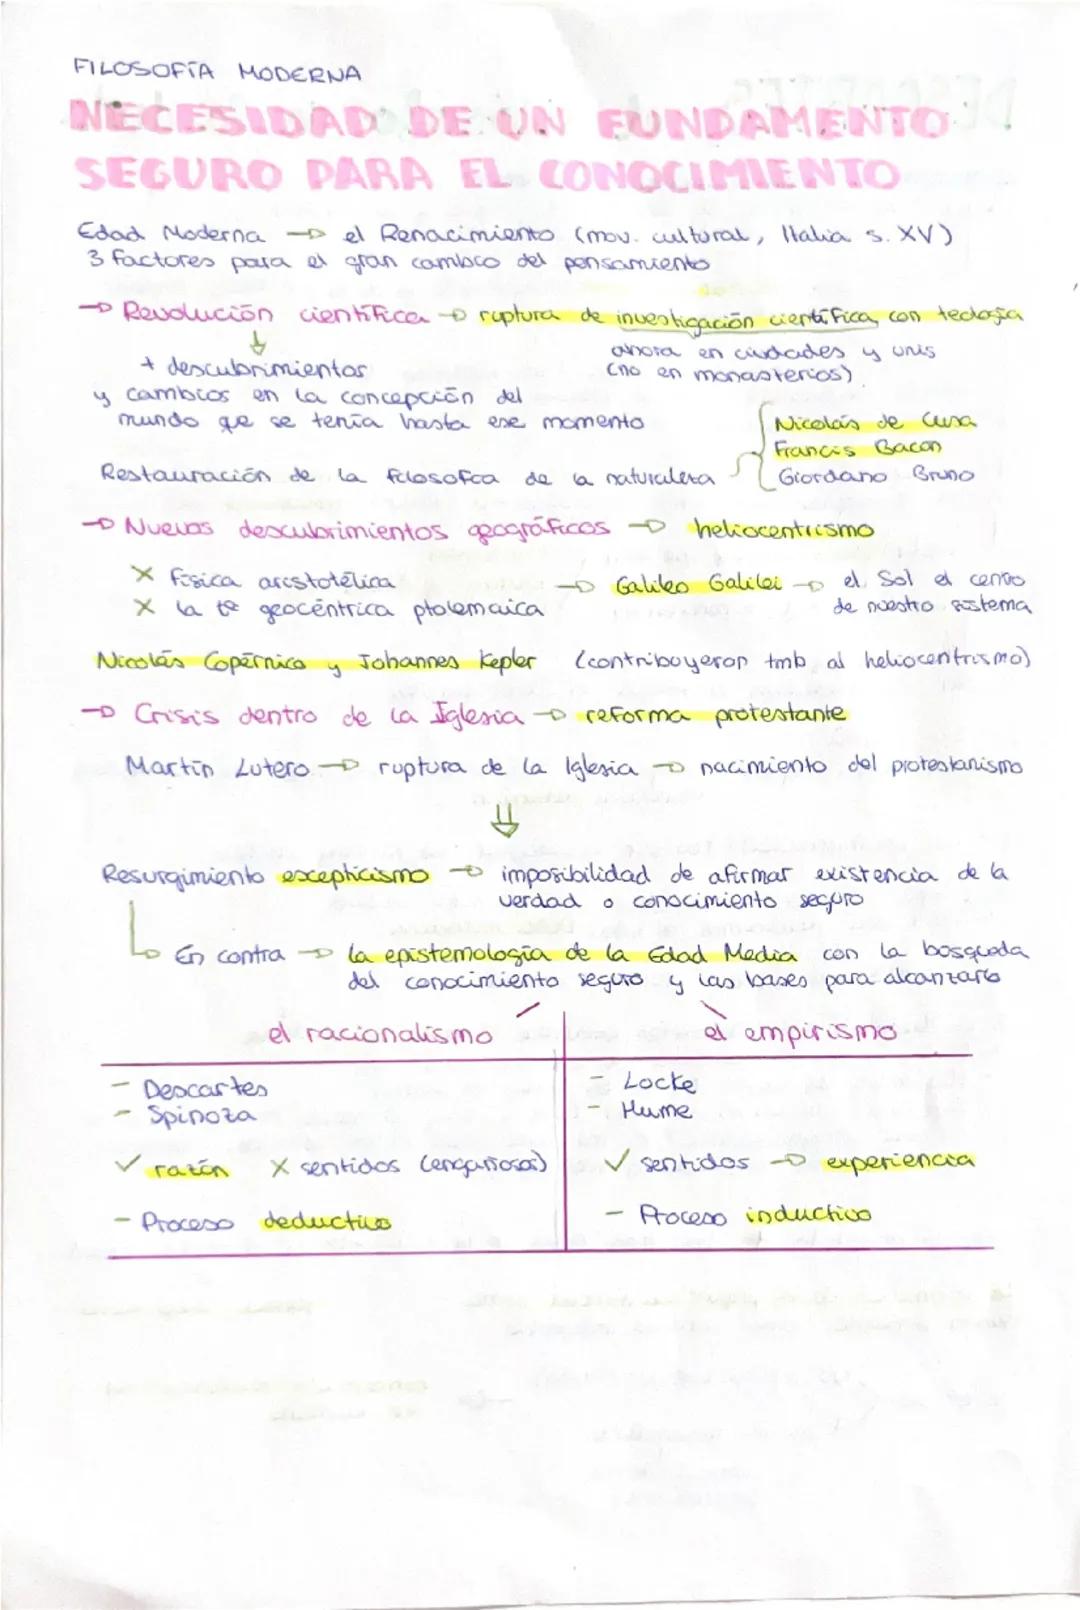 FILOSOFÍA MODERNA
NECESIDAD DE UN FUNDAMENTO
SEGURO PARA EL CONOCIMIENTO
Edad Moderna → el Renacimiento (mov. cultural, Italia s. XV)
3 factores para el gran cambio del pensamiento
→ Revolución científica → ruptura de investigación científica con teología
↓
ahora en ciudades y unis
(no en monasterios)
+ descubrimientos
y cambios en la concepción del
mundo que se tenía hasta ese momento
Restauración de la filosofía de la naturaleza
Nicolás de Cusa
Francis Bacon
Giordano Bruno
→ Nuevos descubrimientos geográficos → heliocentrismo
X Física aristotélica
X la tª geocéntrica ptolemaica
→ Galileo Galilei → el Sol el centro
de nuestro sistema
Nicolás Copérnico y Johannes Kepler (contribuyeron tmb al heliocentrismo)
→ Crisis dentro de la Iglesia → reforma protestante
Martín Lutero → ruptura de la Iglesia → nacimiento del protestanismo
⇓
Resurgimiento escepticismo → imposibilidad de afirmar existencia de la
verdad o conocimiento seguro
↳ En contra → la epistemología de la Edad Media con la búsqueda
del conocimiento seguro y las bases para alcanzarlo
el racionalismo
- Descartes
- Spinoza
✓ razón X sentidos (engañosos)
- Proceso deductivo
el empirismo
- Locke
- Hume
✓ sentidos → experiencia
- Proceso inductivo